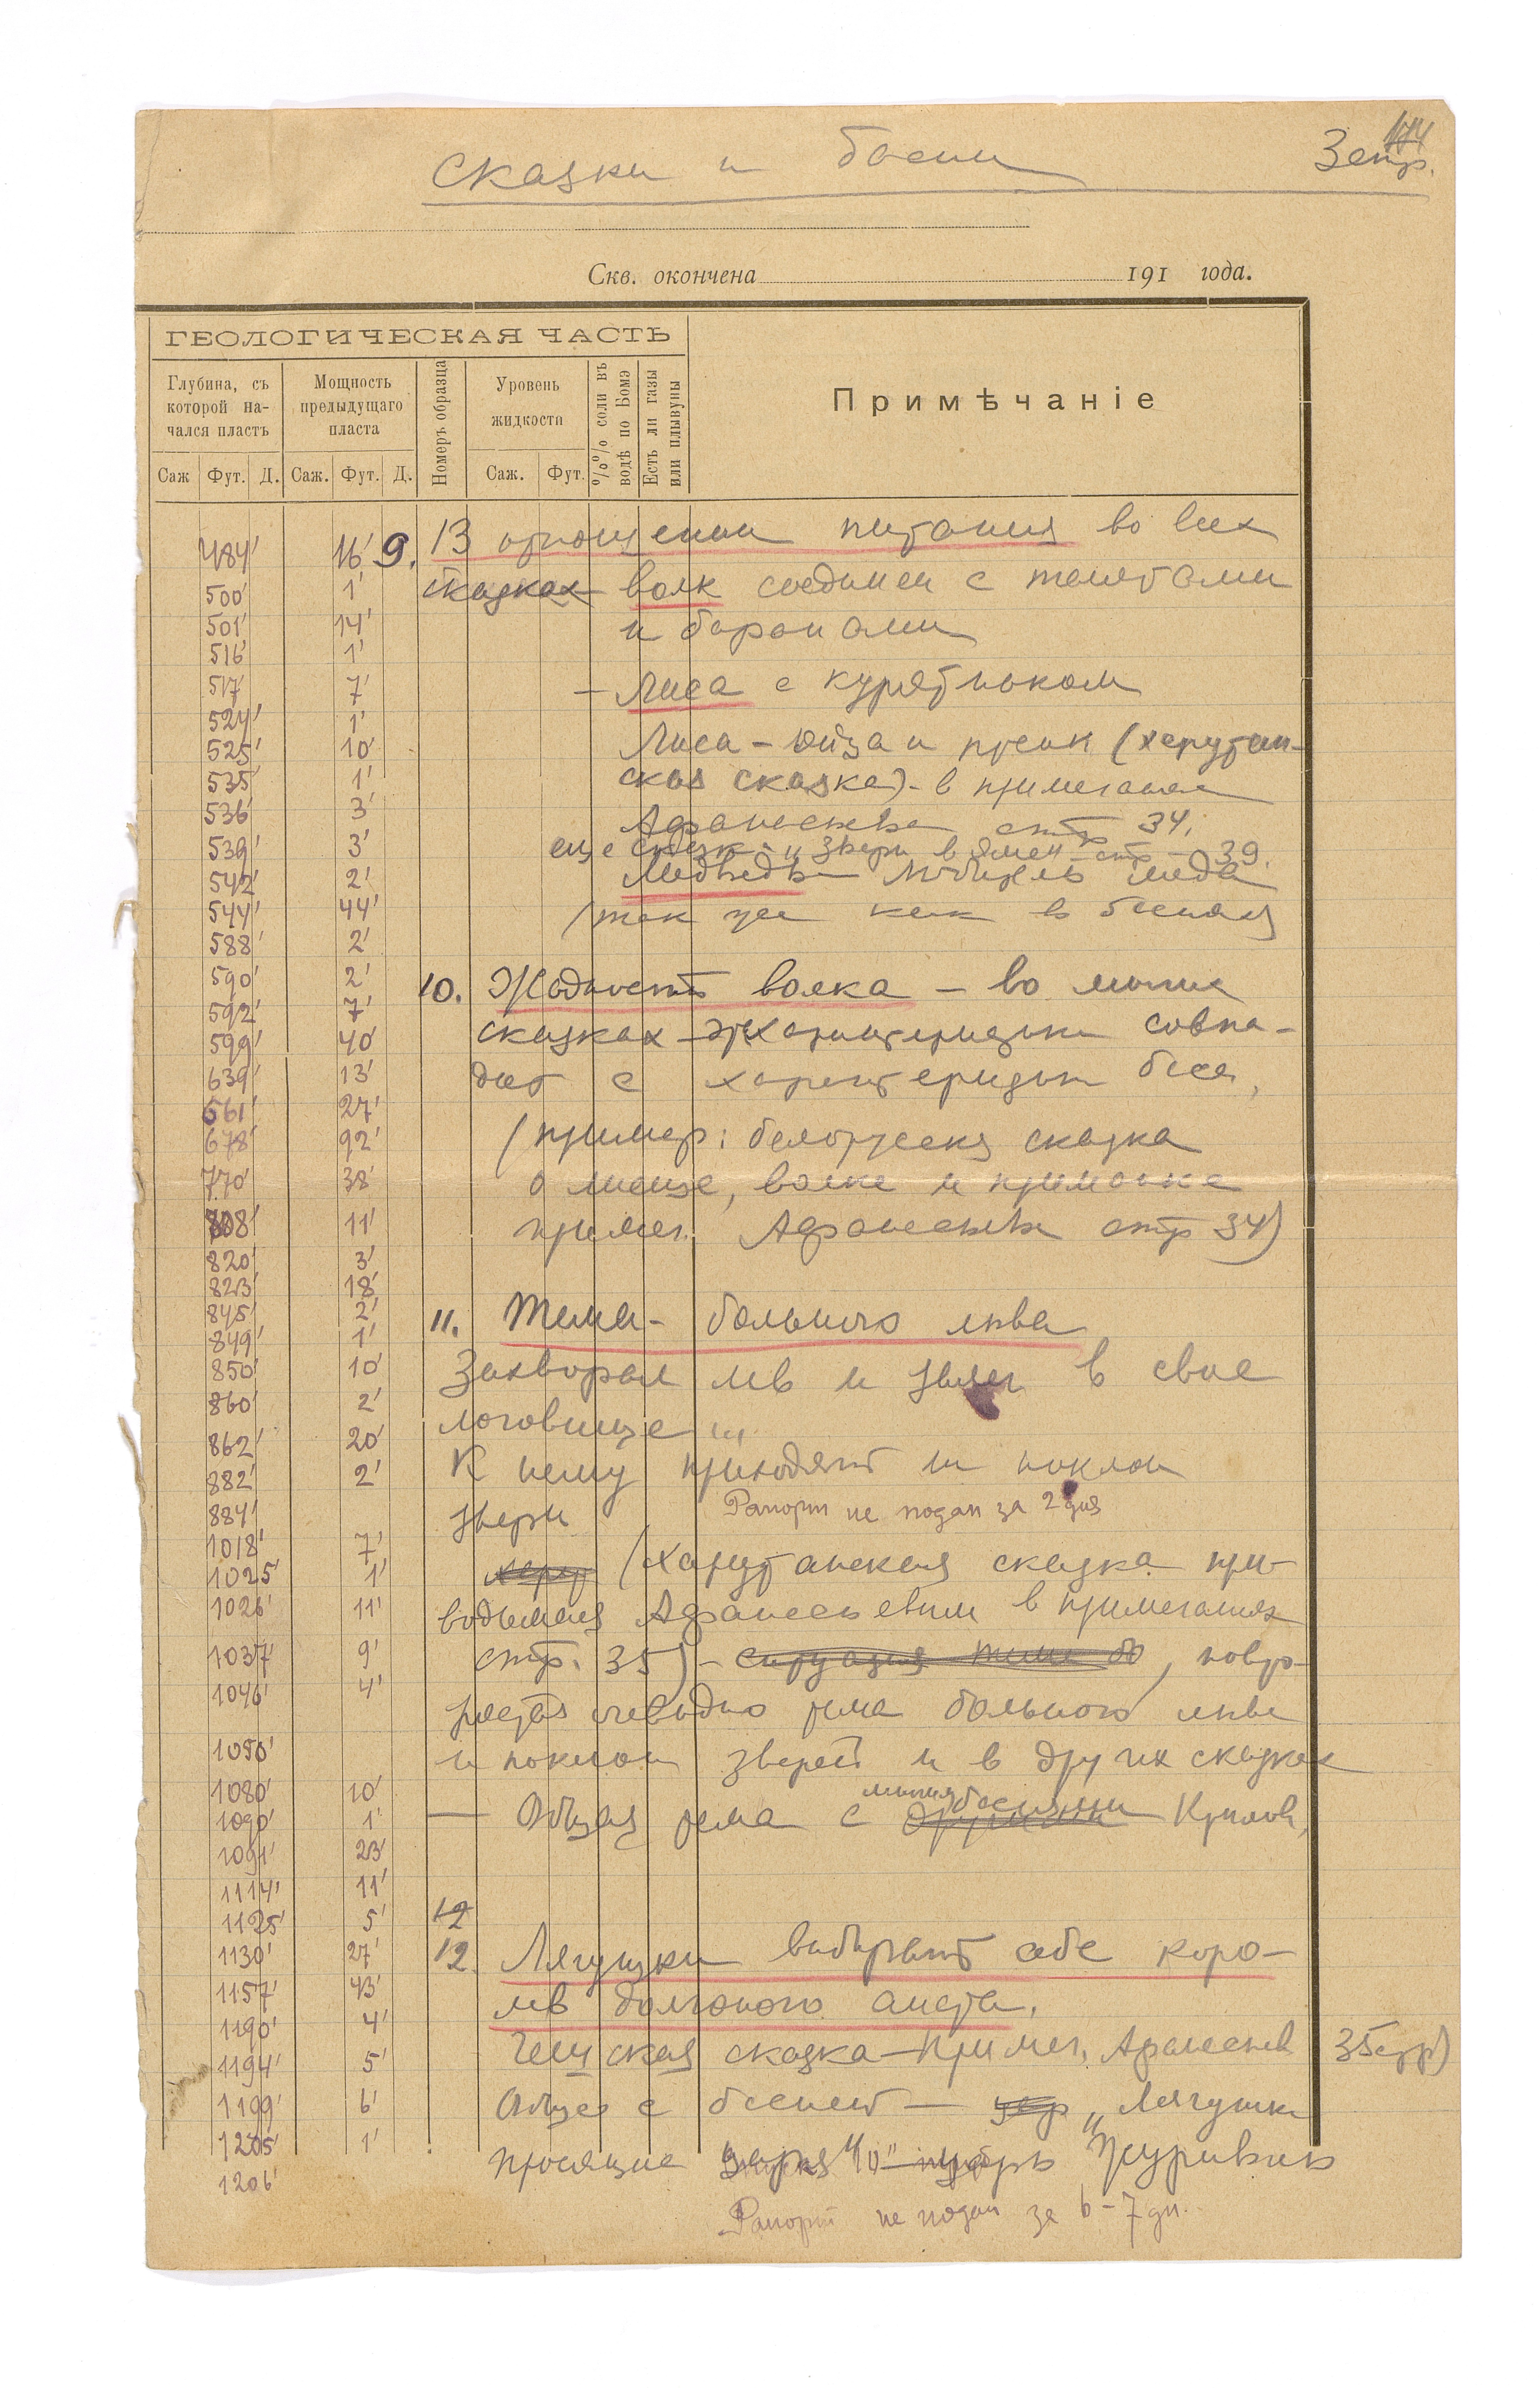 174
Сказки и басни 3 стр.
Скв. окончена 191 года.
ГЕОЛОГИЧЕСКАЯ ЧАСТЬ
Примѣчаніе
Глубина, съ которой на-чался пластъ
Мощность предыдущаго пласта
Номеръ образца
Уровень жидкости
%% соли въ водѣ по Бомэ
Есть ли газы или плывуны
Саж Фут. Д. Саж. Фут. Д. Саж. Фут.
484' 16' 9. В отношении питания во всех
500' 1' сказках волк соединен с телятами
501' 14' и баранами
516' 1'
517' 7' – Лиса с курятником
524' 1'
525' 10' Лиса – и (херутан-
535' 1' ская сказка) – в примечании
536' 3' Афанасьева стр 34.
539' 3' еще звери в яме – стр – 39.
542' 2' Медведь – любитель меда
544' 44' (так же как в баснях
588' 2'
590' 2' 10. Жадность волка – во многих
592' 7'
599' 40' сказках характеристики совпа-
639' 13' дают с характеристик басен,
661' 27'
678' 92' (пример: белорусская сказка
770' 38' о лисице, волке и
808' 11' примеч. Афанасьева стр 34)
820' 3'
823' 18'
845' 2' 11. Тема – больного льва
849' 1'
850' 10' Захворал лев и залег в свое
860' 2'
862' 20' логовище ...
882' 2' К нему приходят на поклон
884' звери Рапорт не подан за 2 дня
1018' 7'
1025' 1' херут (Харутанская сказка при-
1026' 11' водимая Афанасьевым в примечаниях
1037' 9' стр. 35) – ситуация темы бо, повто-
1046' 4'
ряется очевидно тема больного льва
1050' и поклон зверей и в других сказках
1080' 10'
1090' 1' — Общая тема с другими многими баснями Крылова,
1091' 23'
1114' 11'
1125' 5' 12
1130' 27' 12. Лягушки выбирают себе коро-
1157' 43' лев долгоногого аиста.
1190' 4'
1194' 5' Чешская сказка – Примеч. Афанасьев 35 стр)
1199' 6' Общее с басней — „Лягушки
1205' 1' просящие царя" Журавль
1206'
Рапорт не подан за 6–7 дн.